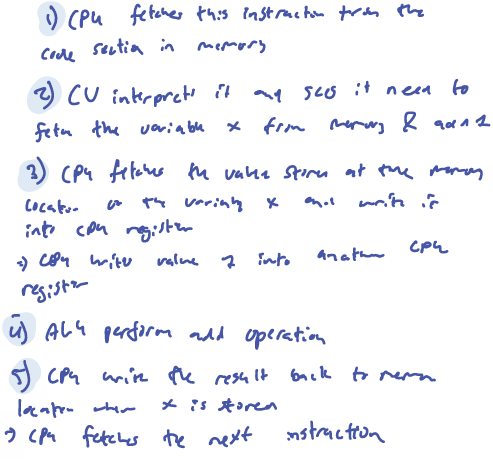 1) CPU fetches this instruction from the
code section in memory
2) CU interprets it and sees it need to
fetch the variable x from memory & add 1
3) CPU fetches the value stored at the memory
location of the variable x and write it
into CPU register
→ CPU writes value 1 into another CPU
register
4) ALU perform add operation
5) CPU write the result back to memory
location where x is stored
→ CPU fetches the next instruction